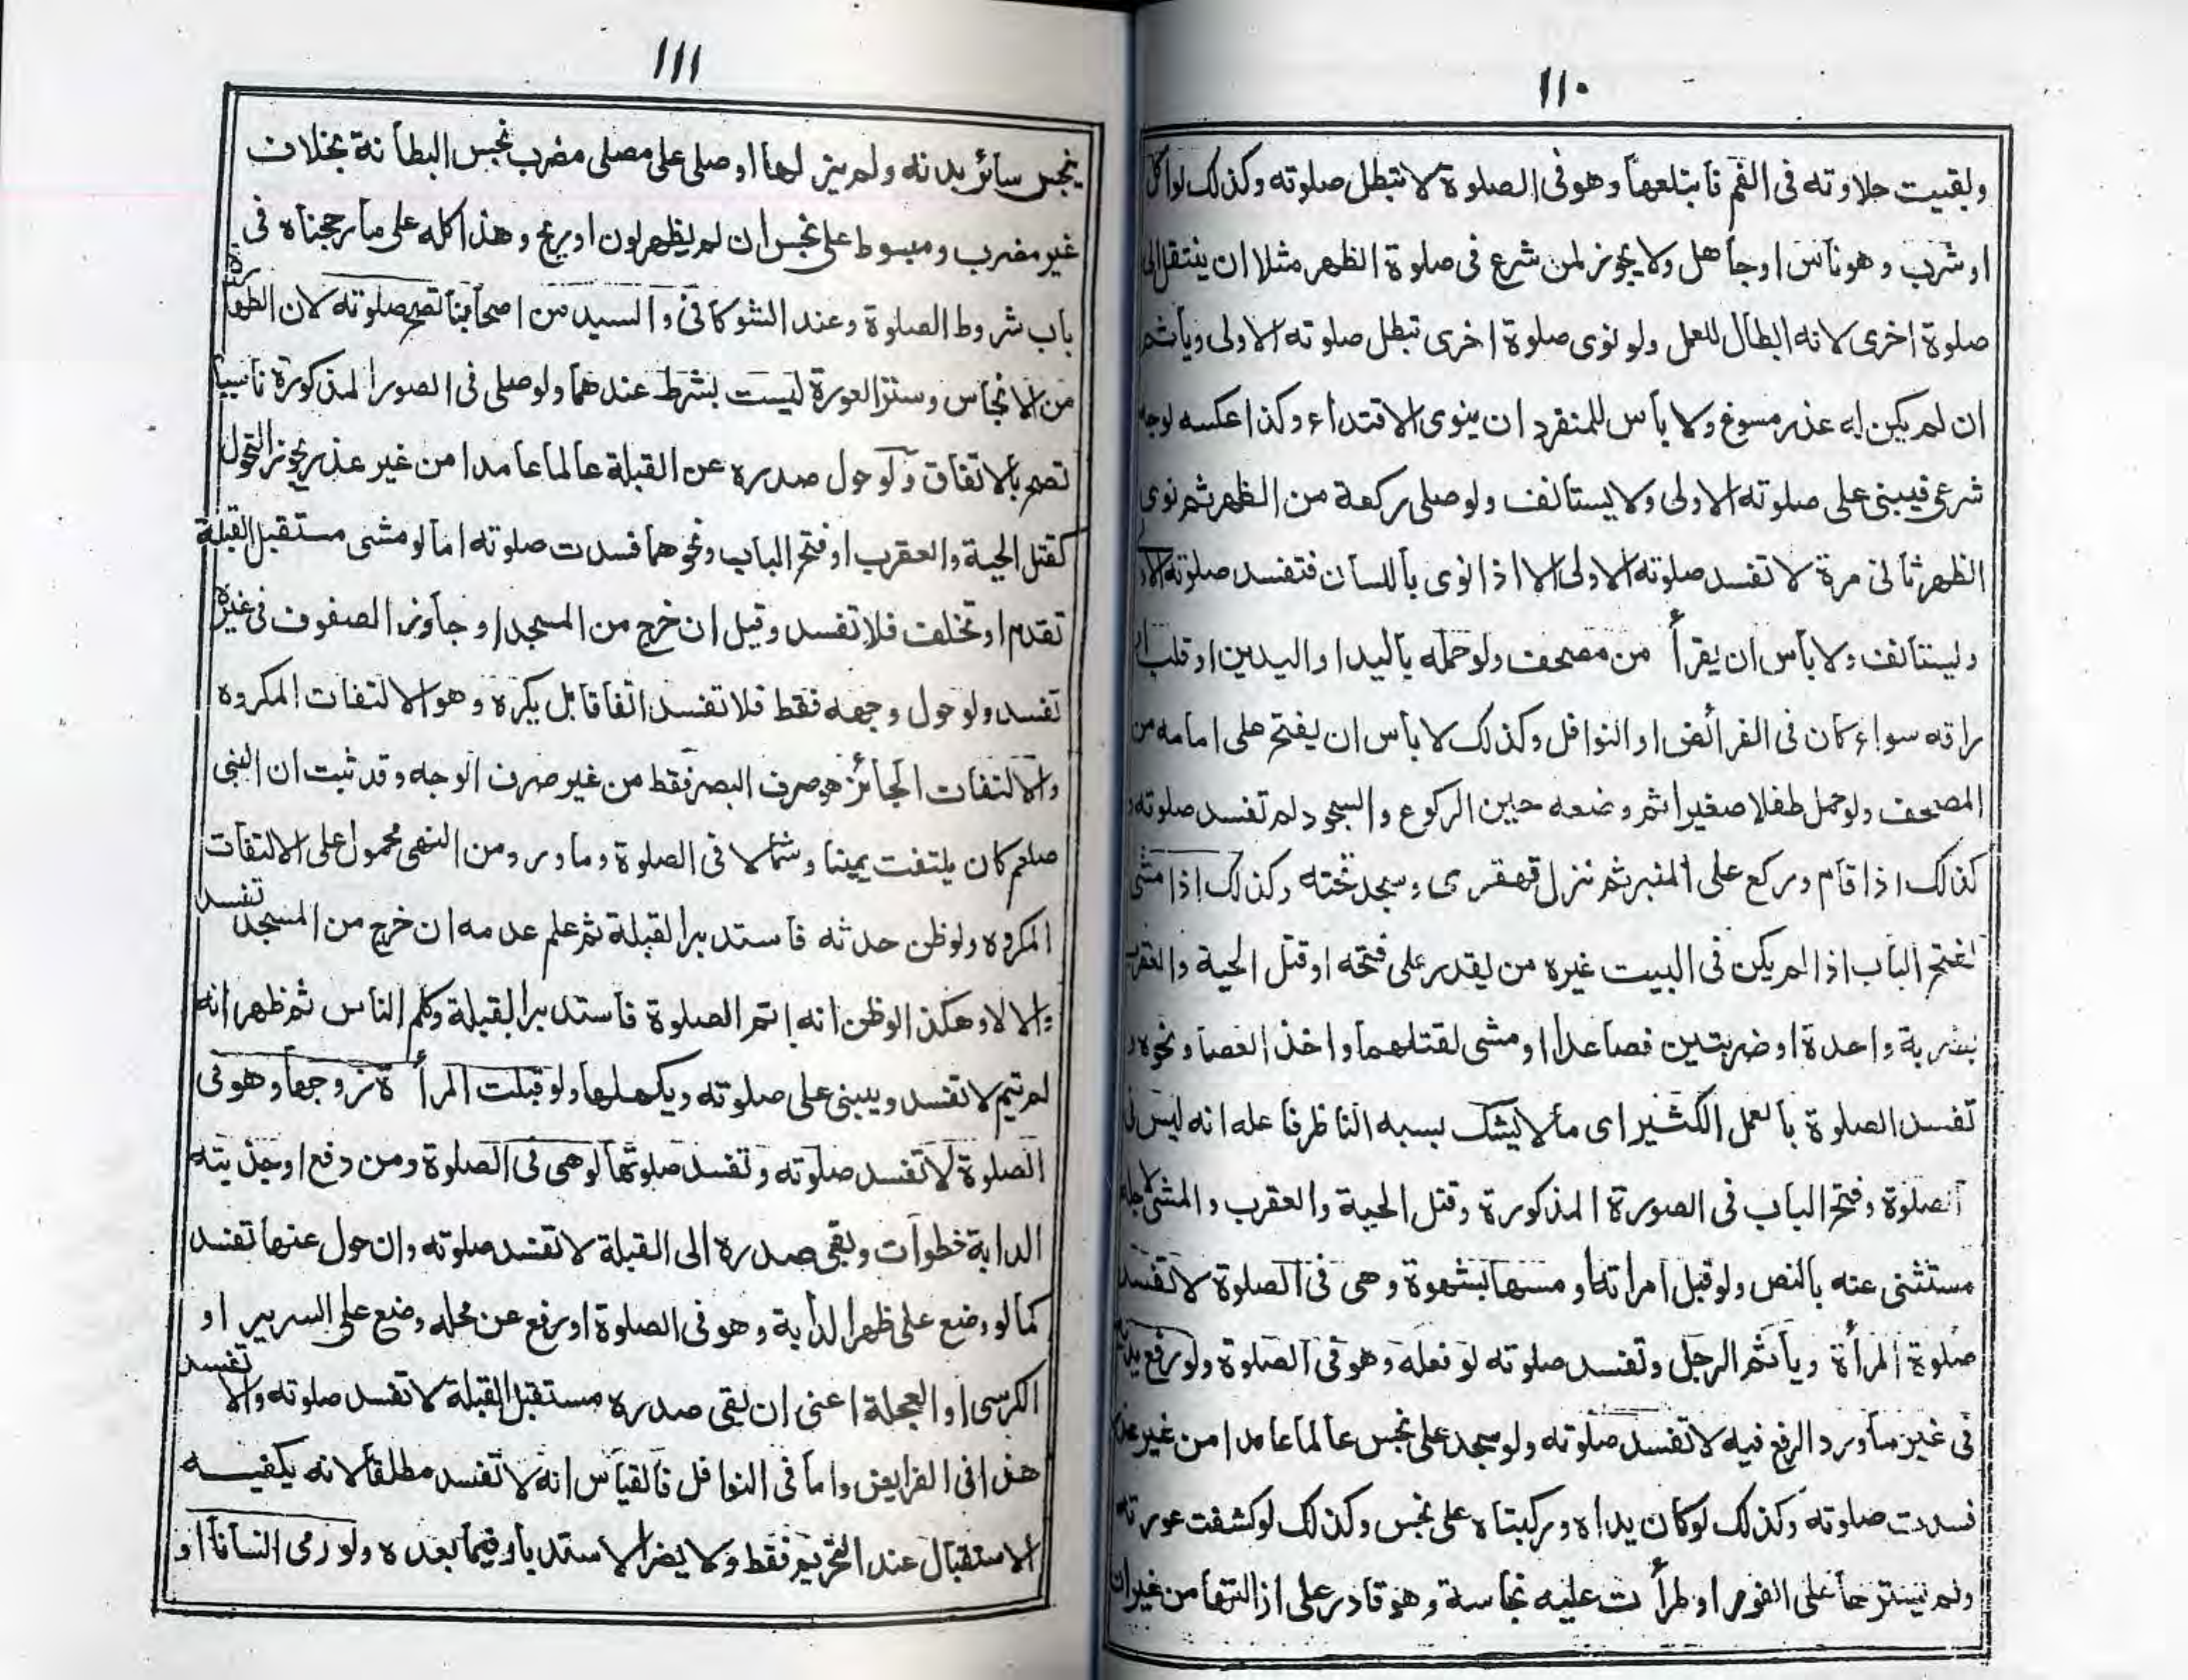 ١١٠
وبقيت حلاوته فى الفم فابتلعها وهو فى الصلوة لا تبطل صلوته وكذلك لو اكل
او شرب وهو ناس او جاهل ولا يجوز لمن شرع فى صلوة الظهر مثلا ان ينتقل الى
صلوة اخرى لانه ابطال للعمل ولو نوى صلوة اخرى تبطل صلوته الاولى ويأثم
ان لم يكن له عذر مسوغ ولا بأس للمنفرد ان ينوى الاقتداء وكذا عكسه لوجه
شرعى فيبنى على صلوته الاولى ولا يستأنف ولو صلى ركعة من الظهر ثم نوى
الظهر ثانى مرة لا تفسد صلوته الاولى الا اذا نوى باللسان فتفسد صلوته
وليستأنف ولا بأس ان يقرأ من مصحف ولو حمله باليد او اليدين او قلب
راقه سواء كان فى الفرائض او النوافل وكذلك لا بأس ان يفتح على امامه من
المصحف ولو حمل طفلا صغيرا ثم وضعه حين الركوع والسجود لم تفسد صلوته
كذلك اذا قام وركع على المنبر ثم نزل قهقرى وسجد تحته وكذلك اذا مشى
لفتح الباب اذا لم يكن فى البيت غيره من يقدر على فتحه او قتل الحية والعقرب
بضربة واحدة او ضربتين فصاعدا او مشى لقتلهما واخذ العصا ونحوه
تفسد الصلوة بالعمل الكثير اى ما لا يشك بسببه الناظر فاعله انه ليس فى
الصلوة وفتح الباب فى الصورة المذكورة وقتل الحية والعقرب والمشى لاجله
مستثنى عنه بالنص ولو قبل امراته او مسها بشهوة وهى فى الصلوة لا تفسد
صلوة المرأة ويأثم الرجل وتفسد صلوته لو فعله وهو فى الصلوة ولو رفع يديه
فى غير ما ورد الرفع فيه لا تفسد صلوته ولو سجد على نجس عالما عامدا من غير عذر
فسدت صلوته وكذلك لو كان يداه وركبتاه على نجس وكذلك لو كشفت عورته
ولم يسترها على الفور او طرأت عليه نجاسة وهو قادر على ازالتها من غير ان
١١١
ينجس سائر بدنه ولم يزلها او صلى على مصلى مضرب نجس البطانة بخلاف
غير مضرب ومبسوط على نجس ان لم يظهر لون او ريح وهذا كله على ما رجحناه فى
باب شروط الصلوة وعند الشوكانى والسيد من اصحابنا تصح صلوته لان الطهارة
من الانجاس وستر العورة ليست بشرط عندهما ولو صلى فى الصور المذكورة ناسيا
تصح بالاتفاق ولو حول صدره عن القبلة عالما عامدا من غير عذر يجوز التحول
كقتل الحية والعقرب او فتح الباب ونحوهما فسدت صلوته اما لو مشى مستقبل القبلة
تقدم او تخلف فلا تفسد وقيل ان خرج من المسجد او جاوز الصفوف فى غيره
تفسد ولو حول وجهه فقط فلا تفسد اتفاقا بل يكره وهو الالتفات المكروه
والالتفات الجائز هو صرف البصر فقط من غير صرف الوجه وقد ثبت ان النبى
صلعم كان يلتفت يمينا وشمالا فى الصلوة وما ورد من النهى محمول على الالتفات
المكروه ولو ظن حدثه فاستدبر القبلة ثم علم عدمه ان خرج من المسجد تفسد
والا لا وهكذا لو ظن انه اتم الصلوة فاستدبر القبلة وكلم الناس ثم ظهر انه
لم يتم لا تفسد ويبنى على صلوته ويكملها ولو قبلت المرأة زوجها وهو فى
الصلوة لا تفسد صلوته وتفسد صلوتها لو هى فى الصلوة ومن دفع او جذبته
الدابة خطوات وبقى صدره الى القبلة لا تفسد صلوته وان حول عنها تفسد
كما لو وضع على ظهر الدابة وهو فى الصلوة او رفع عن محله وضع على السرير او
الكرسى او العجلة اعنى ان بقى صدره مستقبل القبلة لا تفسد صلوته والا تفسد
هذا فى الفرايض واما فى النوافل فالقياس انه لا تفسد مطلقا لانه يكفيه
الاستقبال عند التحريم فقط ولا يضر الاستدبار فيما بعده ولو رمى انسانا او